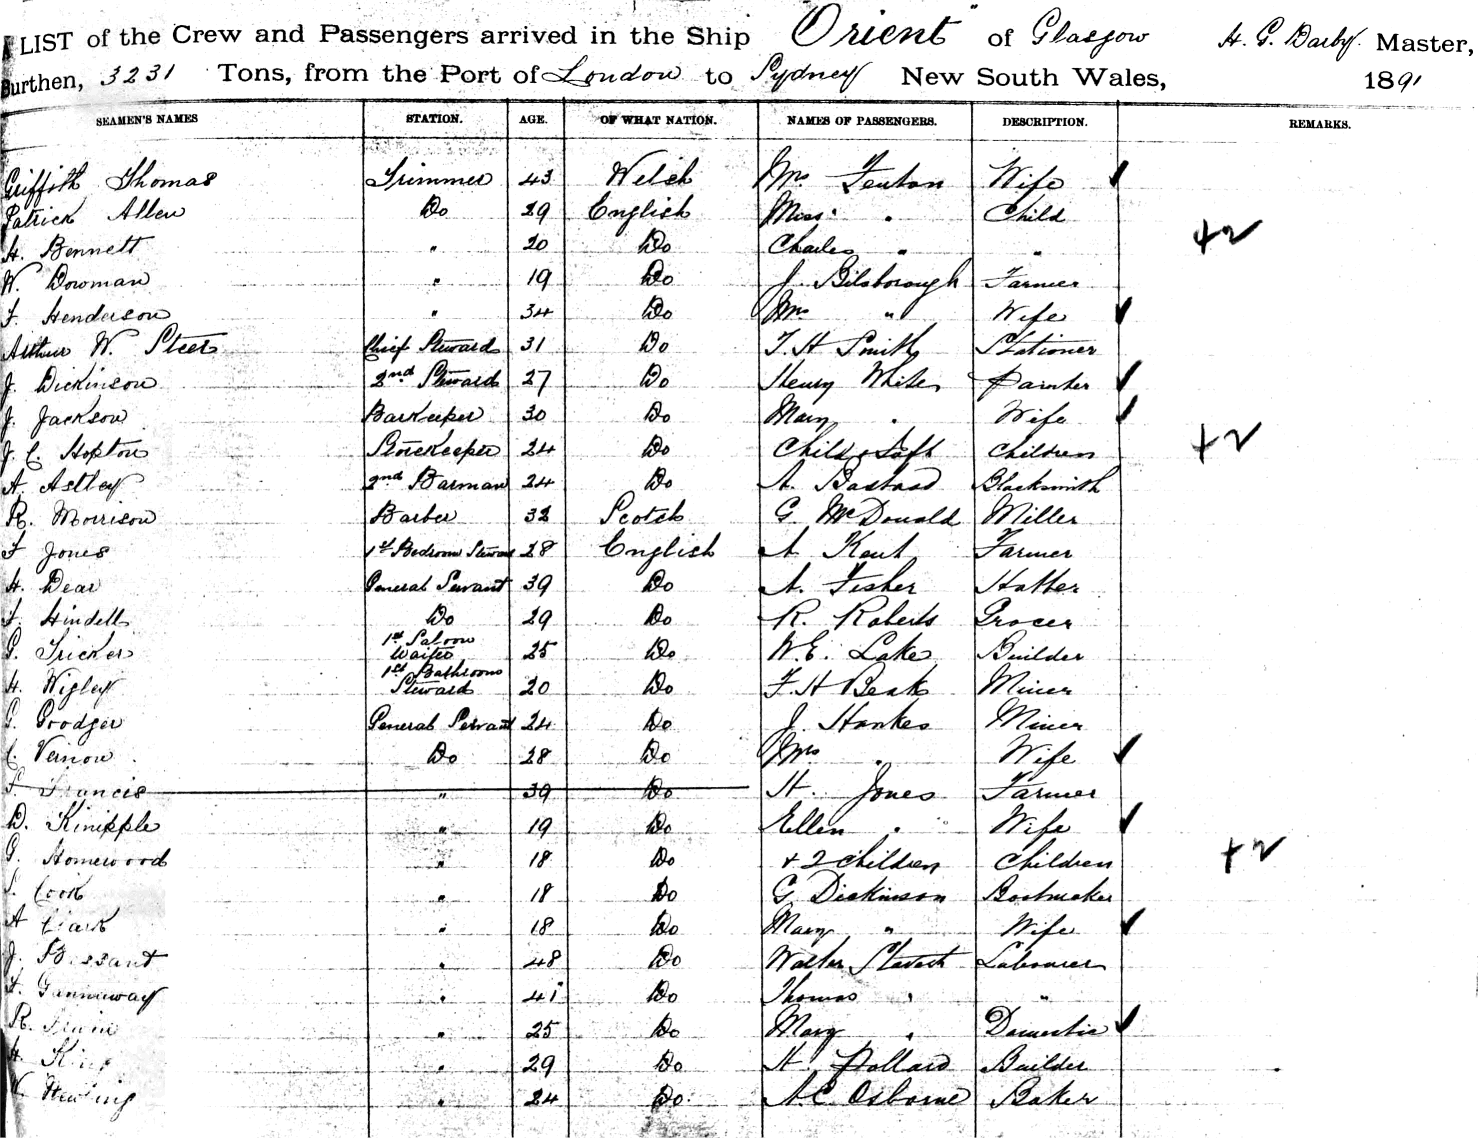 A LIST of the Crew and Passengers arrived in the Ship "Orient" of Glasgow H. G. Darby Master,
Burthen, 3231 Tons, from the Port of London to Sydney New South Wales, 1891
SEAMEN'S NAMES STATION. AGE. OF WHAT NATION. NAMES OF PASSENGERS. DESCRIPTION. REMARKS.
Griffith Thomas Trimmer 43 Welch Mrs Fenton Wife ✓
Patrick Allen Do 29 English Miss " Child +2
H. Bennett " 20 Do Charles " "
W. Dowman " 19 Do J. Bilsborough Farmer
F. Henderson " 34 Do Mrs " Wife ✓
Arthur W. Steer Chief Steward 31 Do T. H Smith Stationer
J. Dickinson 2nd Steward 27 Do Henry White Painter ✓
J. Jackson Barkeeper 30 Do Mary " Wife ✓
J. C. Hopton Storekeeper 24 Do Child & Inft Children +2
A. Astley 2nd Barman 24 Do A. Bastard Blacksmith
R. Morrison Barber 32 Scotch G. McDonald Miller
F Jones 1st Bedroom Steward 28 English A Kent Farmer
H. Dear General Servant 39 Do A. Fisher Hatter
F. Hindell Do 29 Do R. Roberts Grocer
G. Tricker 1st Saloon Waiter 25 Do W. E. Lake Builder
H. Wigley 1st Bathroom Steward 20 Do F. H Beak Miner
G. Goodger General Servant 24 Do J. Hankes Miner
C. Vernon Do 28 Do Mrs " Wife ✓
Francis " 39 Do H. Jones Farmer
D. Kinipple " 19 Do Ellen " Wife ✓
G. Homewood " 18 Do + 2 children Children +2
Cook " 18 Do G. Dickinson Bootmaker
A Clark " 18 Do Mary " Wife ✓
J. Bissant " 48 Do Walter Labourer
F. Gannaway " 41 Do Thomas " "
R. " 25 Do Mary " Domestic ✓
H. King " 29 Do H. Pollard Builder
" 24 Do. A. C. Osborne Baker